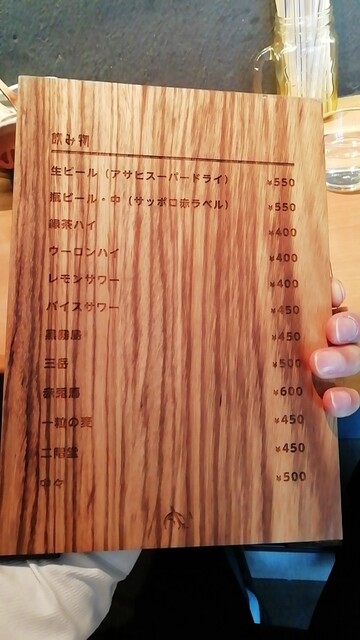 飲み物
生ビール（アサヒスーパードライ） ¥550
瓶ビール・中（サッポロ赤ラベル） ¥550
緑茶ハイ ¥400
ウーロンハイ ¥400
レモンサワー ¥400
バイスサワー ¥450
黒霧島 ¥450
三岳 ¥500
赤兎馬 ¥600
一粒の麦 ¥450
二階堂 ¥450
中々 ¥500